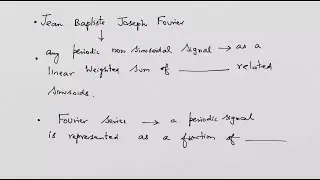 • Jean Baptiste Joseph Fourier
↓
• any periodic non sinusoidal signal → as a
linear weighted sum of ________ related
sinusoids.
• Fourier series → a periodic signal
is represented as a function of ______